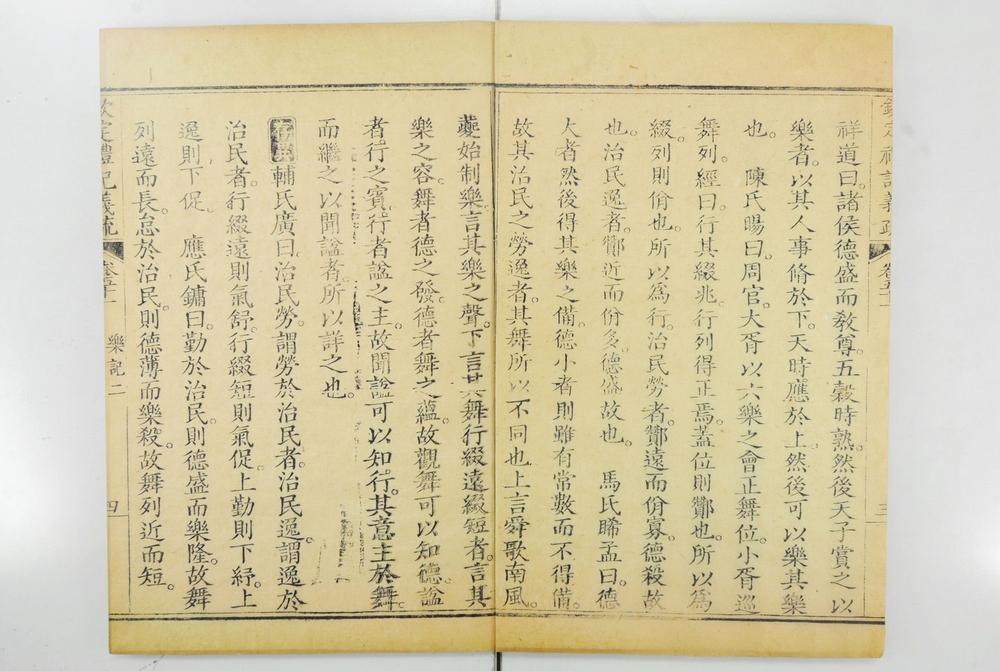 祥道曰。諸侯德盛而敎尊。五穀時熟。然後天子賞之以
樂者。以其人事脩於下。天時應於上。然後可以樂其樂
也。　陳氏暘曰。周官。大胥以六樂之會正舞位。小胥巡
舞列。經曰。行其綴兆。行列得正焉。蓋位則酇也。所以為
綴。列則佾也。所以為行。治民勞者。酇遠而佾寡。德殺故
也。治民逸者。酇近而佾多。德盛故也。　馬氏睎孟曰。德
大者。然後得其樂之備。德小者。則雖有常數而不得備。
故其治民之勞逸者。其舞所以不同也。上言舜歌南風。
夔始制樂。言其樂之聲。下言其舞行綴遠綴短者。言其
樂之容。舞者德之發。德者舞之蘊。故觀舞可以知德。諡
者。行之賓。行者諡之主。故聞諡可以知行。其意主於舞。
而繼之以聞諡者。所以詳之也。
存異 輔氏廣曰。治民勞。謂勞於治民者。治民逸。謂逸於
治民者。行綴遠則氣舒。行綴短則氣促。上勤則下紓。上
逸則下促。　應氏鏞曰。勤於治民。則德盛而樂隆。故舞
列遠而長。怠於治民。則德薄而樂殺。故舞列近而短。
欽定禮記義疏　卷五十一　樂記二　四